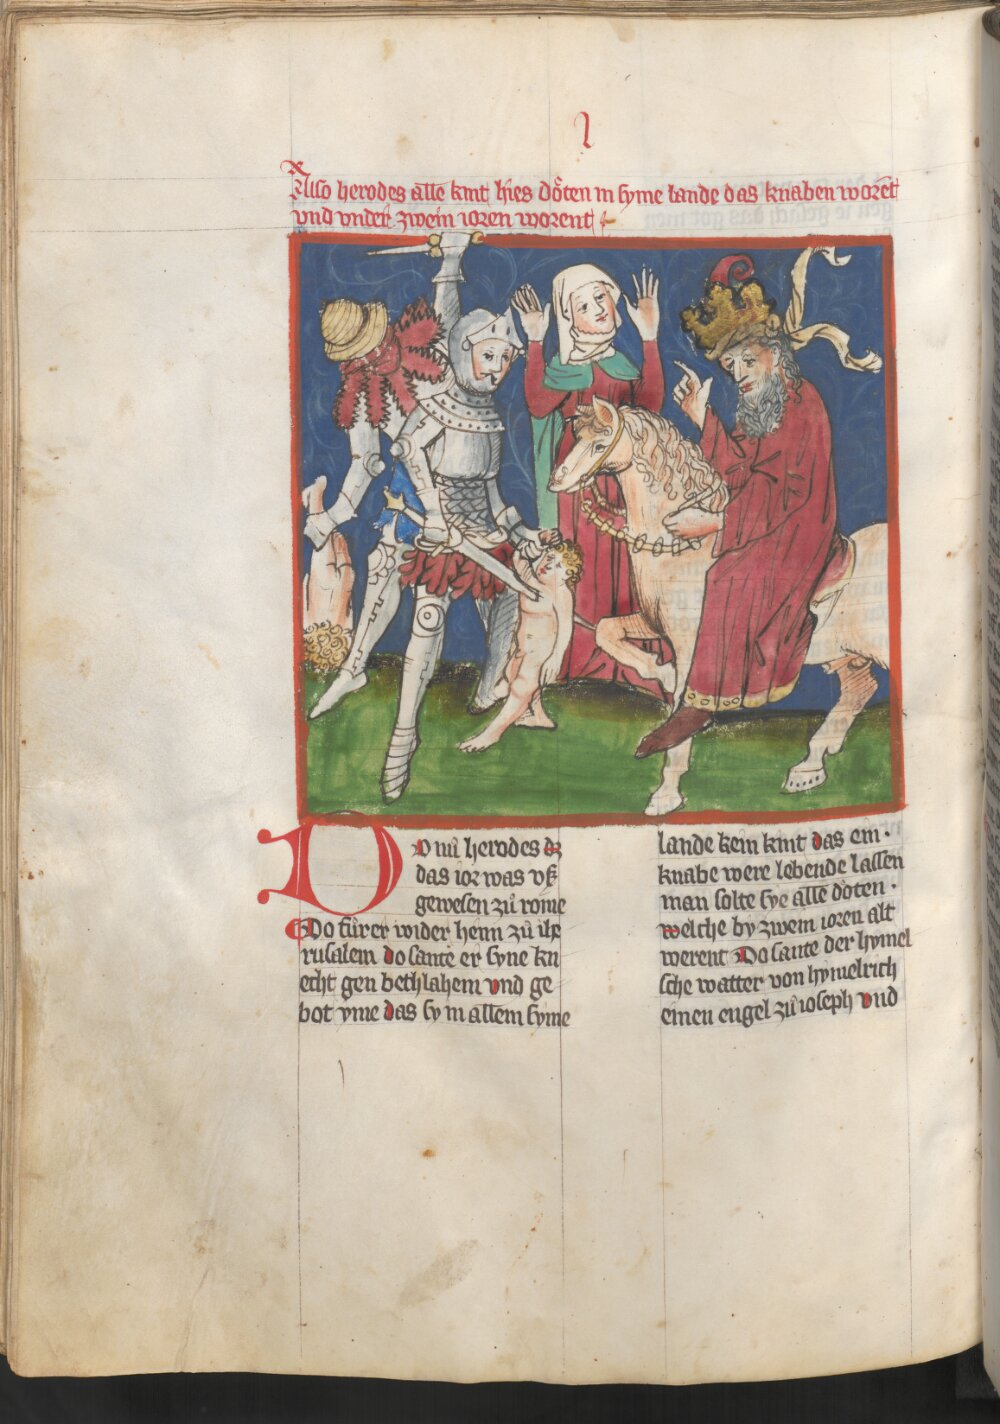 l
Also herodes alle kint hies doͤten in syme lande das knaben worēt
vnd vnder zwein ioren worent
Do nuͦ herodes dz
das ior was vß
gewesen zuͦ rome
Do fuͦr er wider heim zuͦ ihe
rusalem do sante er syne kn
echt gen bethlahem vnd ge
bot yme das sy in allem syme
lande kein kint das ein
knabe were lebende lassen
man solte sye alle doͤten ·
welche by zwein ioren alt
werent Do sante der hymel
sche vatter von hymelrich
einen engel zuͦ ioseph vnd